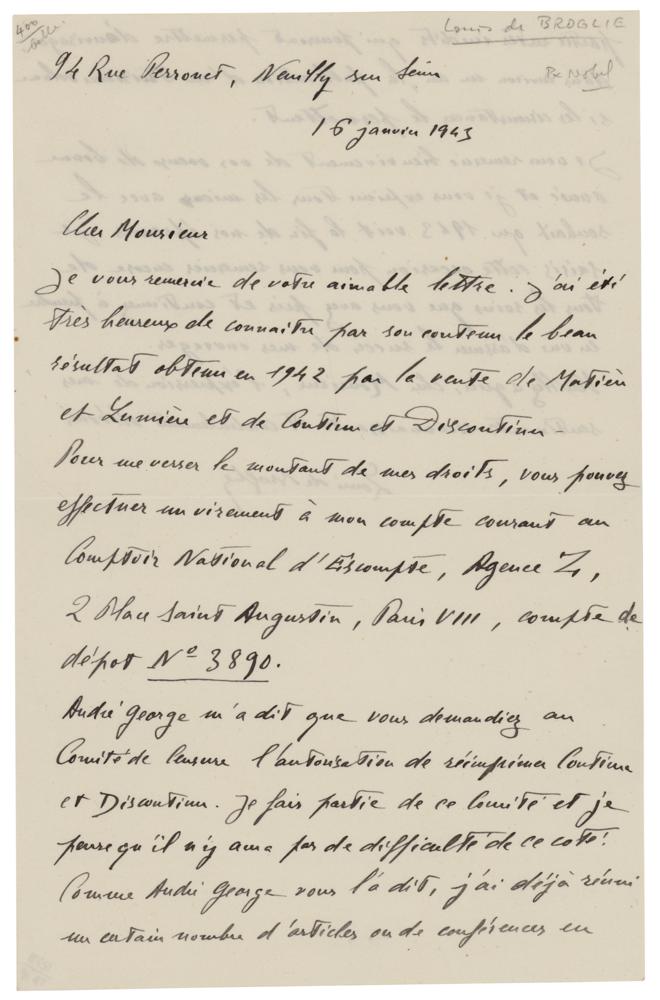 Louis de BROGLIE
400
Px Nobel
94 Rue Perronet, Neuilly sur Seine
16 janvier 1943
Cher Monsieur
Je vous remercie de votre aimable lettre. J'ai été
très heureux de connaitre par son contenu le beau
résultat obtenu en 1942 par la vente de Matière
et Lumière et de Continu et Discontinu.
Pour me verser le montant de mes droits, vous pouvez
effectuer un virement à mon compte courant au
Comptoir National d'Escompte, Agence Z,
2 Place Saint Augustin, Paris VIII, compte de
dépot Nº 3890.
André George m'a dit que vous demandiez au
Comité de Censure l'autorisation de réimprimer Continu
et Discontinu. Je fais partie de ce Comité et je
pense qu'il n'y aura pas de difficulté de ce coté.
Comme André George vous l'a dit, j'ai déjà réuni
un certain nombre d'articles ou de conférences en